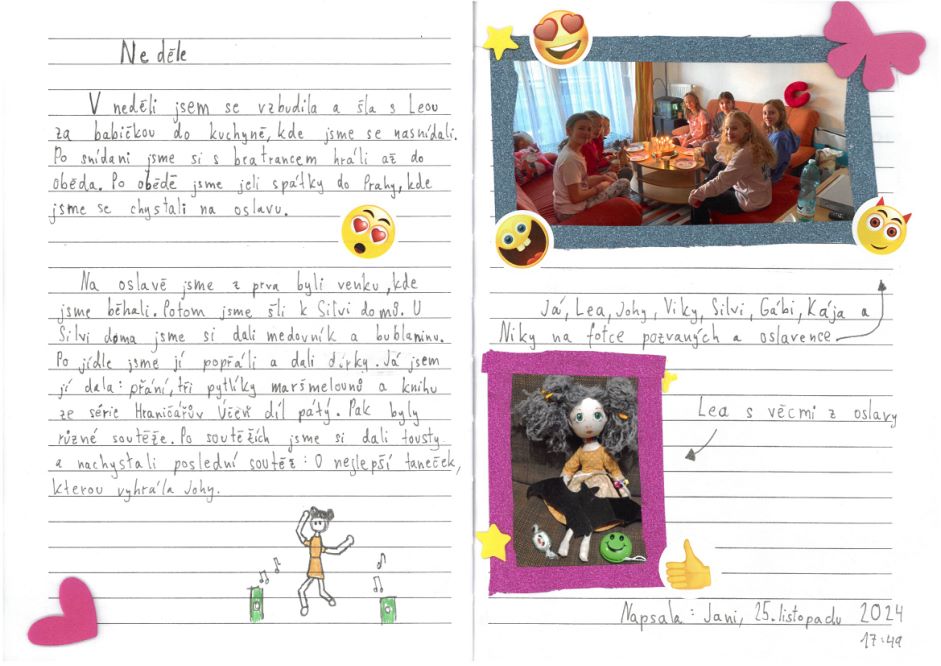 Neděle
V neděli jsem se vzbudila a šla s Leou
za babičkou do kuchyně, kde jsme se nasnídali.
Po snídani jsme si s bratrancem hráli až do
oběda. Po obědě jsme jeli spátky do Prahy, kde
jsme se chystali na oslavu.
Na oslavě jsme z prva byli venku, kde
jsme běhali. Potom jsme šli k Silvi domů. U
Silvi doma jsme si dali medovník a bublaninu.
Po jídle jsme jí popřáli a dali dárky. Já jsem
jí dala: přání, tři pytlíky maršmelounů a knihu
ze série Hraničářův Učeň díl pátý. Pak byly
různé soutěže. Po soutěžích jsme si dali tousty
a nachystali poslední soutěž: O nejlepší taneček,
kterou vyhrála Johy.
Já, Lea, Johy, Viky, Silvi, Gábi, Kája a
Niky na fotce pozvaných a oslavence
Lea s věcmi z oslavy
Napsala: Jani, 25. listopadu 2024
17:49